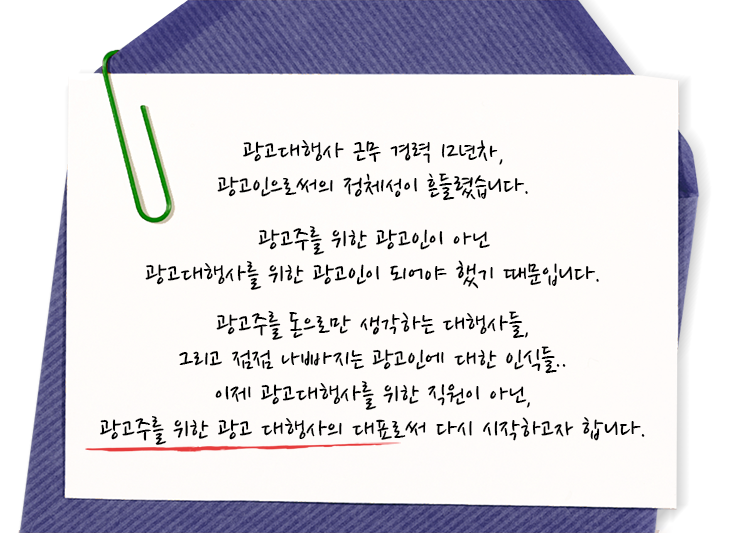 광고대행사 근무 경력 12년차,
광고인으로써의 정체성이 흔들렸습니다.
광고주를 위한 광고인이 아닌
광고대행사를 위한 광고인이 되어야 했기 때문입니다.
광고주를 돈으로만 생각하는 대행사들,
그리고 점점 나빠지는 광고인에 대한 인식들..
이제 광고대행사를 위한 직원이 아닌,
광고주를 위한 광고 대행사의 대표로써 다시 시작하고자 합니다.